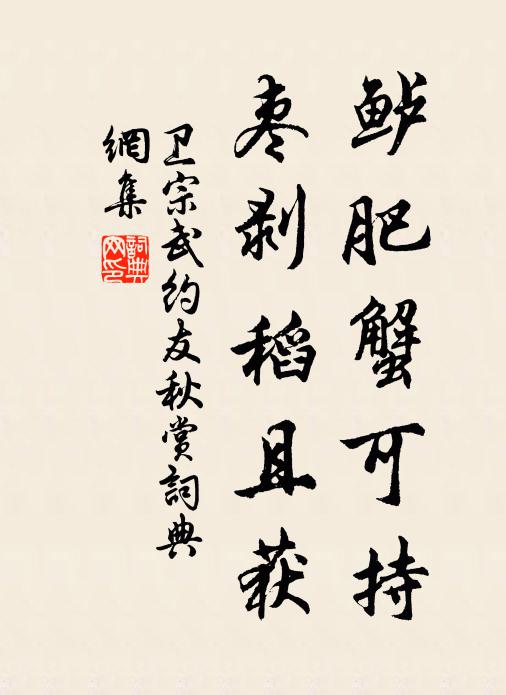 鲈肥蟹可持
枣剥稻且获
卫宗武约友秋赏詞典
網集
詞典
网印